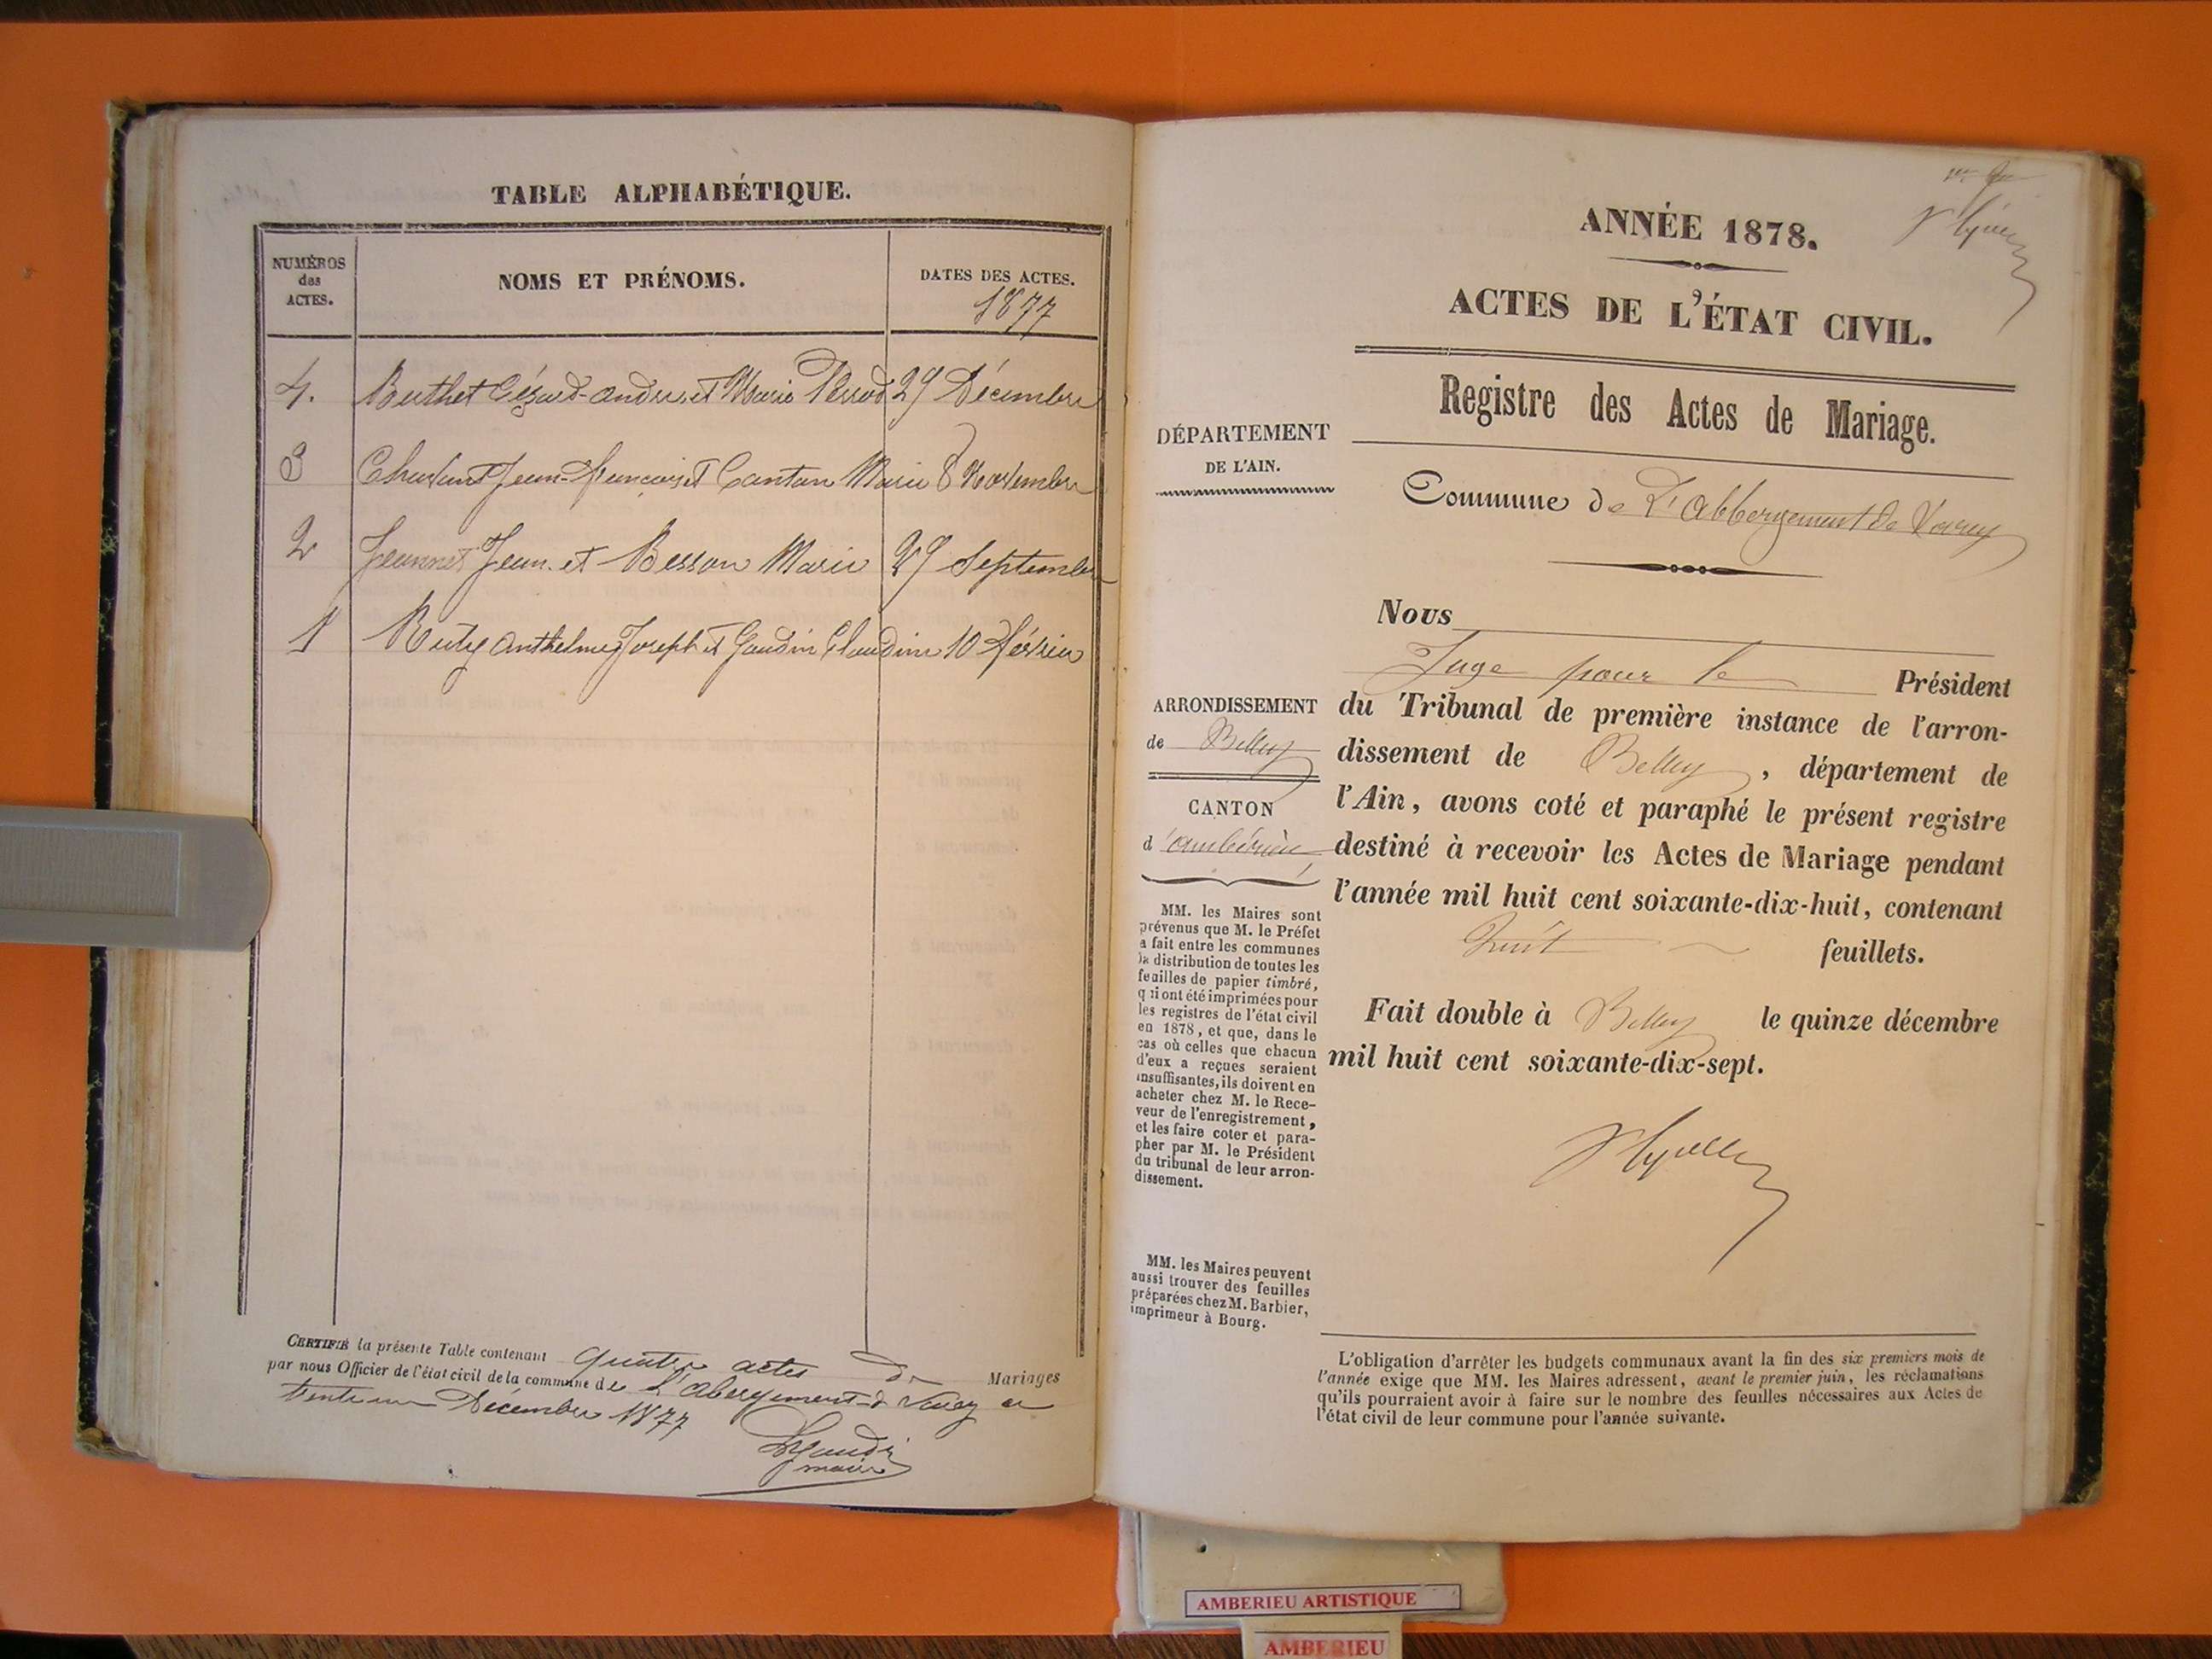 TABLE ALPHABÉTIQUE.
NUMÉROS
des
ACTES.
NOMS ET PRÉNOMS.
DATES DES ACTES.
1877
4. Berthet Cézard-andre et Marie Perrod 29 Décembre
3 Jean-francois et Cantan Marie 8 Novembre
2 Jeannet Jean et Besson Marie 29 Septembre
1 Ruty Anthelme Joseph et Gaudin Claudine 10 février
CERTIFIÉ la présente Table contenant quatre actes de Mariages
par nous Officier de l'état civil de la commune de L'abergement-d Varey ce
trente un Décembre 1877
maire
ANNÉE 1878.
ACTES DE L'ÉTAT CIVIL.
Registre des Actes de Mariage.
DÉPARTEMENT
DE L'AIN.
Commune de L'Abbergement de Varey
Nous
Juge pour le Président
du Tribunal de première instance de l'arron-
dissement de Belley, département de
l'Ain, avons coté et paraphé le présent registre
destiné à recevoir les Actes de Mariage pendant
l'année mil huit cent soixante-dix-huit, contenant
huit feuillets.
Fait double à Belley le quinze décembre
mil huit cent soixante-dix-sept.
ARRONDISSEMENT
de Belley
CANTON
d'ambérieu
MM. les Maires sont
prévenus que M. le Préfet
a fait entre les communes
la distribution de toutes les
feuilles de papier timbré,
qui ont été imprimées pour
les registres de l'état civil
en 1878, et que, dans le
cas où celles que chacun
d'eux a reçues seraient
insuffisantes, ils doivent en
acheter chez M. le Rece-
veur de l'enregistrement,
et les faire coter et para-
pher par M. le Président
du tribunal de leur arron-
dissement.
MM. les Maires peuvent
aussi trouver des feuilles
préparées chez M. Barbier,
imprimeur à Bourg.
L'obligation d'arrêter les budgets communaux avant la fin des six premiers mois de
l'année exige que MM. les Maires adressent, avant le premier juin, les réclamations
qu'ils pourraient avoir à faire sur le nombre des feuilles nécessaires aux Actes de
l'état civil de leur commune pour l'année suivante.
AMBERIEU ARTISTIQUE
AMBERIEU